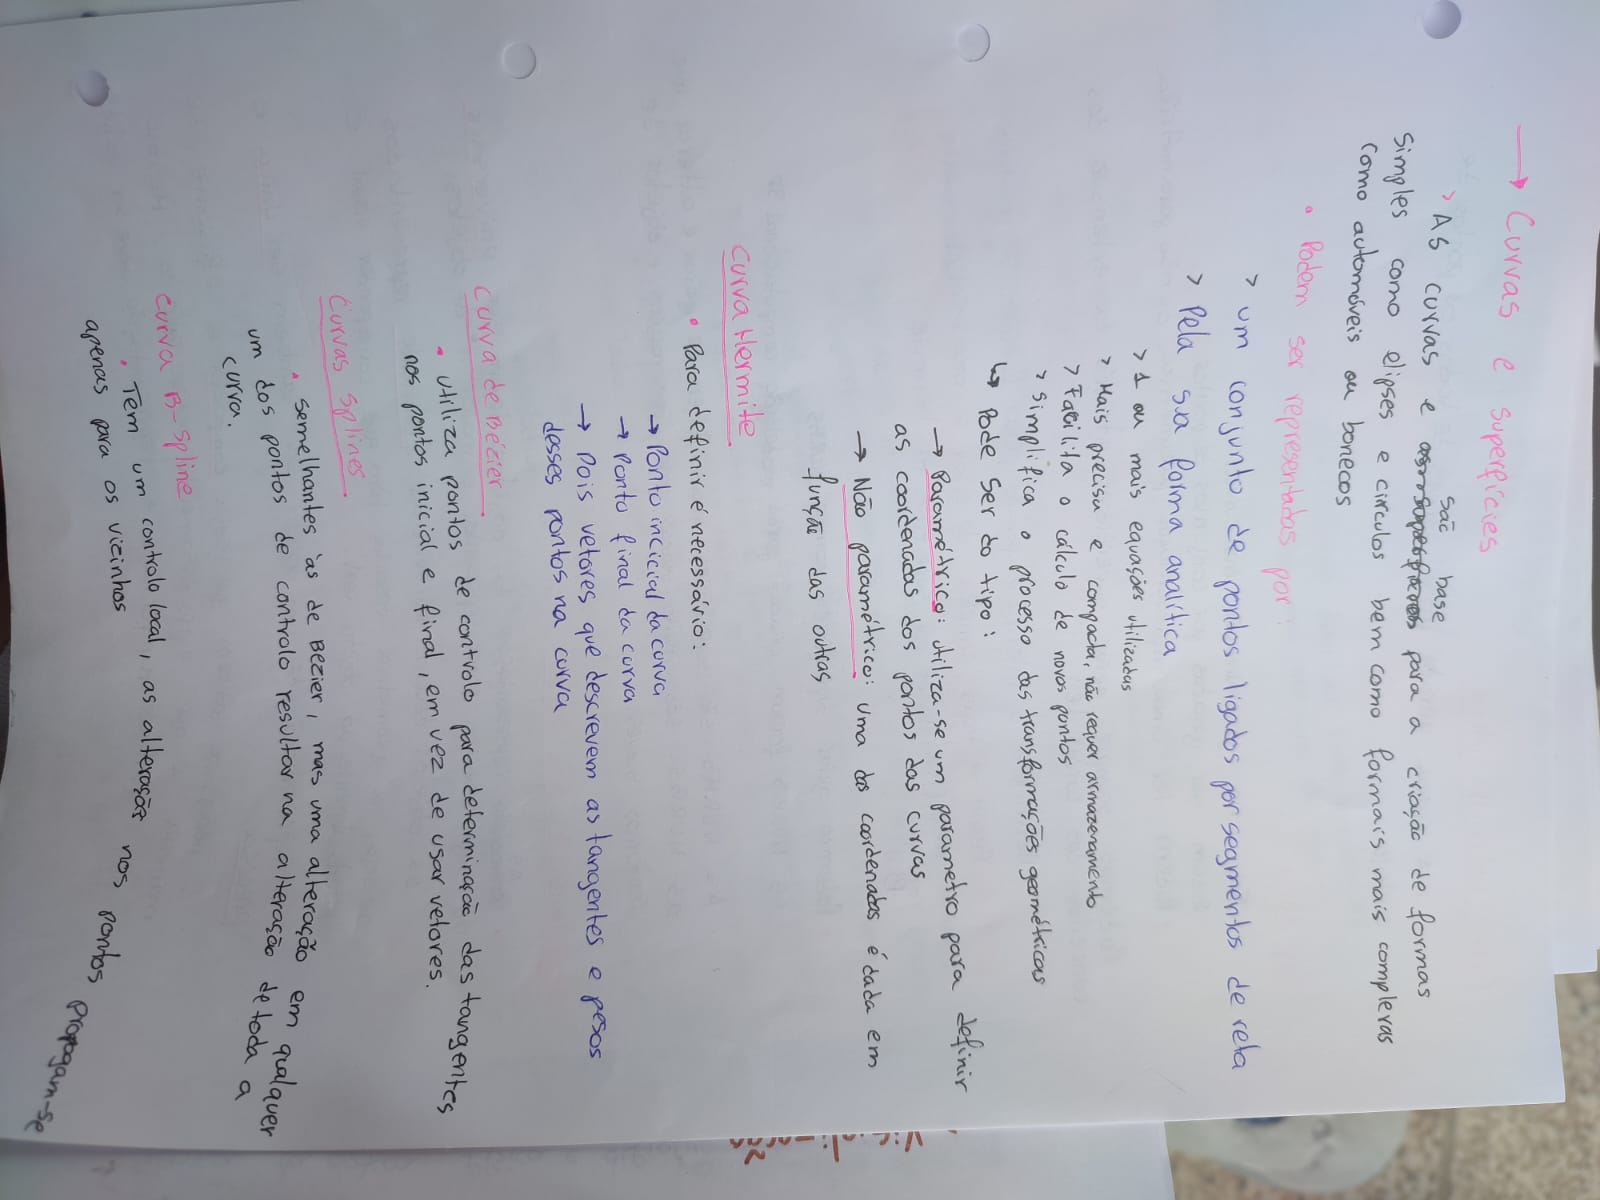 → Curvas e superfícies
são base
> As curvas e as superfícies para a criação de formas
simples como elipses e círculos bem como formais mais complexas
como automóveis ou bonecos
• Podem ser representadas por:
> um conjunto de pontos ligados por segmentos de reta
> Pela sua forma analítica
> 1 ou mais equações utilizadas
> Mais precisa e compacta, não requer armazenamento
> Facilita o cálculo de novos pontos
> simplifica o processo das transformações geométricas
↳ Pode ser do tipo:
→ Paramétrico: utiliza-se um parametro para definir
as coordenadas dos pontos das curvas
→ Não paramétrico: uma das coordenadas é dada em
função das outras
Visualização
Curva Hermite
• Para definir é necessário:
→ Ponto incicial da curva
→ Ponto final da curva
→ Dois vetores que descrevem as tangentes e pesos
desses pontos na curva
Curva de Bézier
• utiliza pontos de controlo para determinação das tangentes
nos pontos inicial e final, em vez de usar vetores.
Curvas Splines
• semelhantes às de Bézier, mas uma alteração em qualquer
um dos pontos de controlo resultar na alteração de toda a
curva.
Curva B-Spline
• Tem um controlo local, as alteração nos pontos propagam-se
apenas para os vicinhos